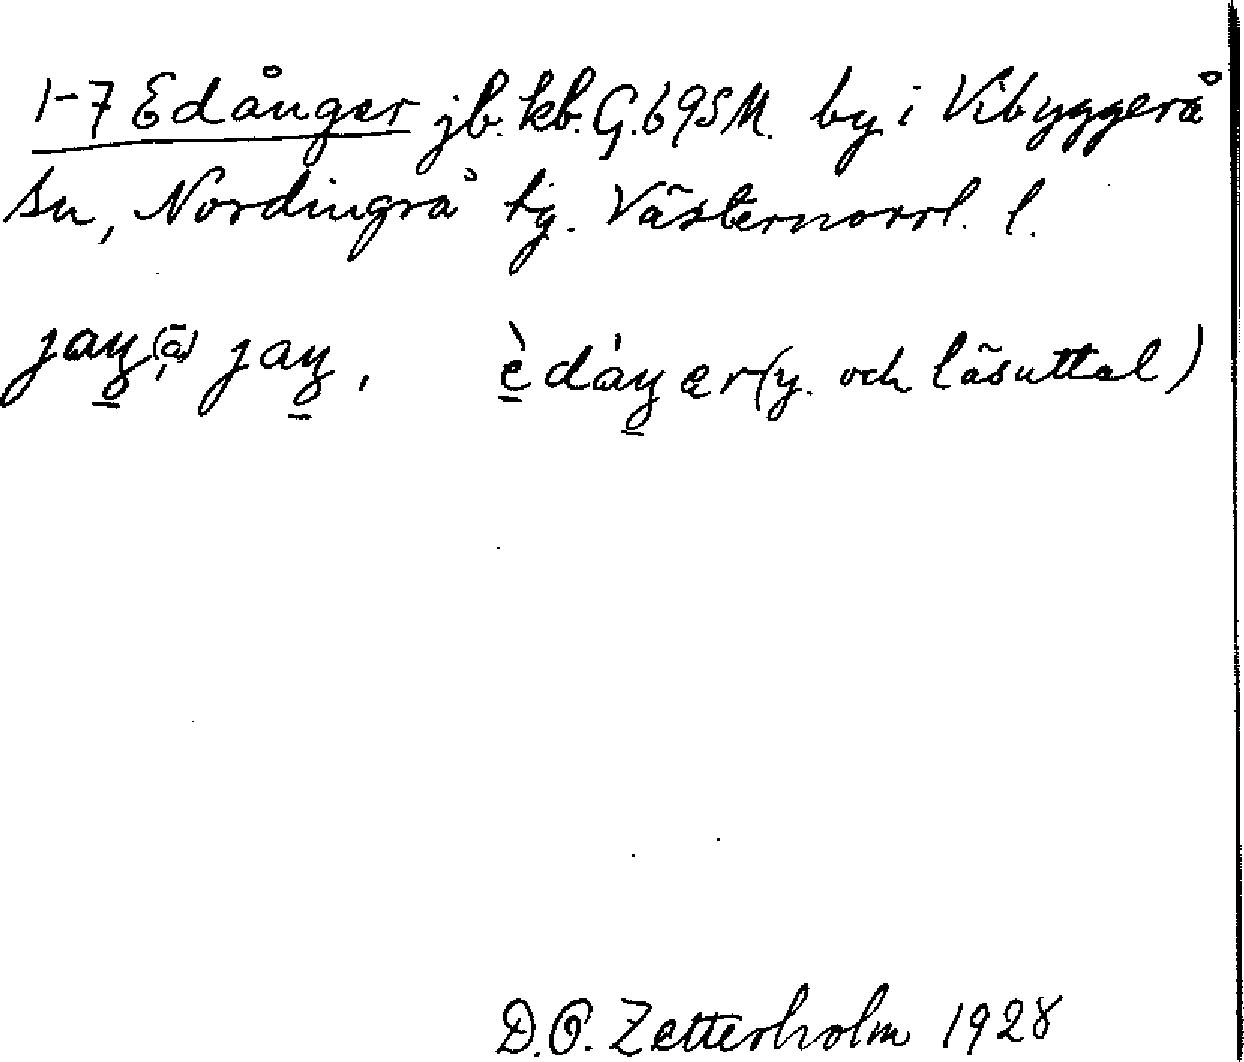 1-7 Edånger jb. kb. G. 69SM. by i Vibyggerå
sn, Nordingrå tg. Västernorrl. l.
jaŋ(a) jaŋ, èdàŋer (y. och läsuttal)
D.O. Zetterholm 1928